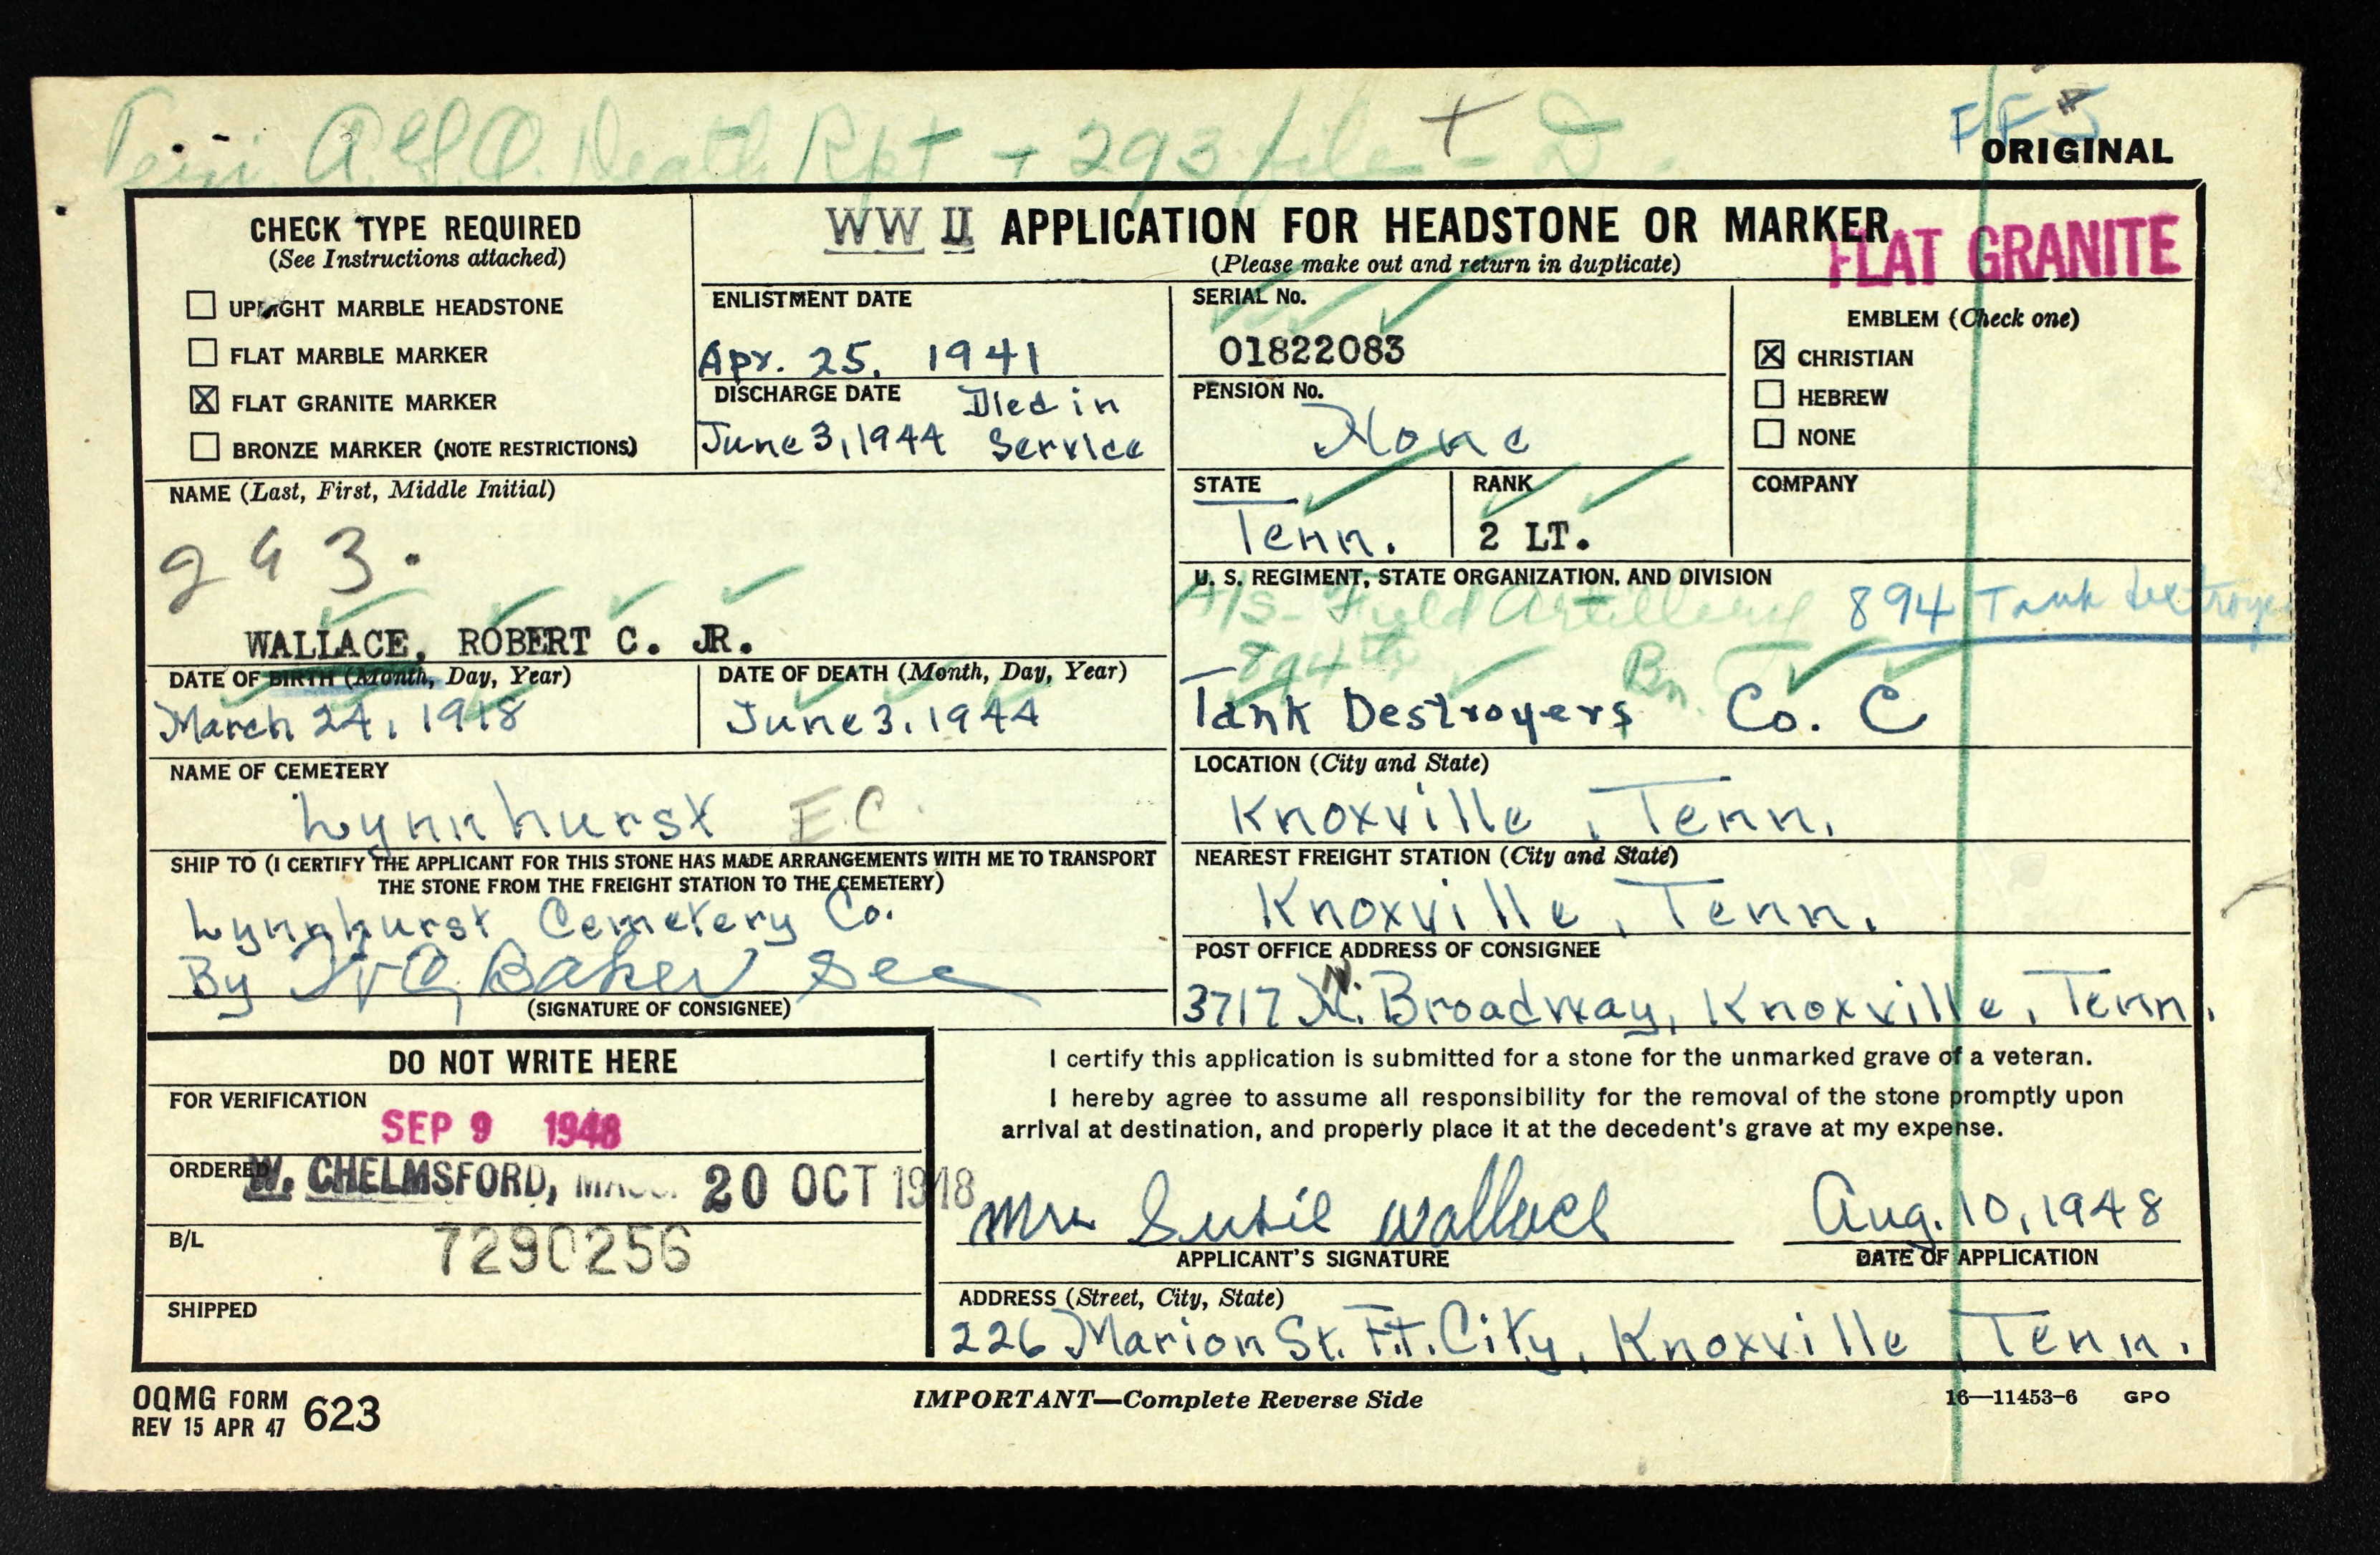 A.G.O. Death Rpt + 293 file - D.
FFS
ORIGINAL
CHECK TYPE REQUIRED
(See Instructions attached)
UPRIGHT MARBLE HEADSTONE
FLAT MARBLE MARKER
☒ FLAT GRANITE MARKER
BRONZE MARKER (NOTE RESTRICTIONS)
WW II APPLICATION FOR HEADSTONE OR MARKER
(Please make out and return in duplicate)
FLAT GRANITE
ENLISTMENT DATE
Apr. 25, 1941
DISCHARGE DATE
Died in
June 3, 1944 Service
SERIAL No.
01822083
PENSION No.
None
EMBLEM (Check one)
☒ CHRISTIAN
HEBREW
NONE
NAME (Last, First, Middle Initial)
293.
WALLACE, ROBERT C. JR.
STATE
Tenn.
RANK
2 LT.
COMPANY
U. S. REGIMENT, STATE ORGANIZATION, AND DIVISION
A/S - Field Artillery
894 Tank Destroyer
894th Bn
Tank Destroyers Co. C
DATE OF BIRTH (Month, Day, Year)
March 24, 1918
DATE OF DEATH (Month, Day, Year)
June 3, 1944
NAME OF CEMETERY
Lynnhurst E.C.
LOCATION (City and State)
Knoxville, Tenn.
SHIP TO (I CERTIFY THE APPLICANT FOR THIS STONE HAS MADE ARRANGEMENTS WITH ME TO TRANSPORT
THE STONE FROM THE FREIGHT STATION TO THE CEMETERY)
Lynnhurst Cemetery Co.
By Baker Sec
(SIGNATURE OF CONSIGNEE)
NEAREST FREIGHT STATION (City and State)
Knoxville, Tenn.
POST OFFICE ADDRESS OF CONSIGNEE
3717 N. Broadway, Knoxville, Tenn.
DO NOT WRITE HERE
FOR VERIFICATION
SEP 9 1948
ORDERED
W. CHELMSFORD, MASS. 20 OCT 1948
B/L
7290256
SHIPPED
I certify this application is submitted for a stone for the unmarked grave of a veteran.
I hereby agree to assume all responsibility for the removal of the stone promptly upon
arrival at destination, and properly place it at the decedent's grave at my expense.
Mrs Susie Wallace
APPLICANT'S SIGNATURE
Aug. 10, 1948
DATE OF APPLICATION
ADDRESS (Street, City, State)
226 Marion St. Ft. City, Knoxville Tenn.
OQMG FORM
REV 15 APR 47 623
IMPORTANT—Complete Reverse Side
16—11453-6 GPO